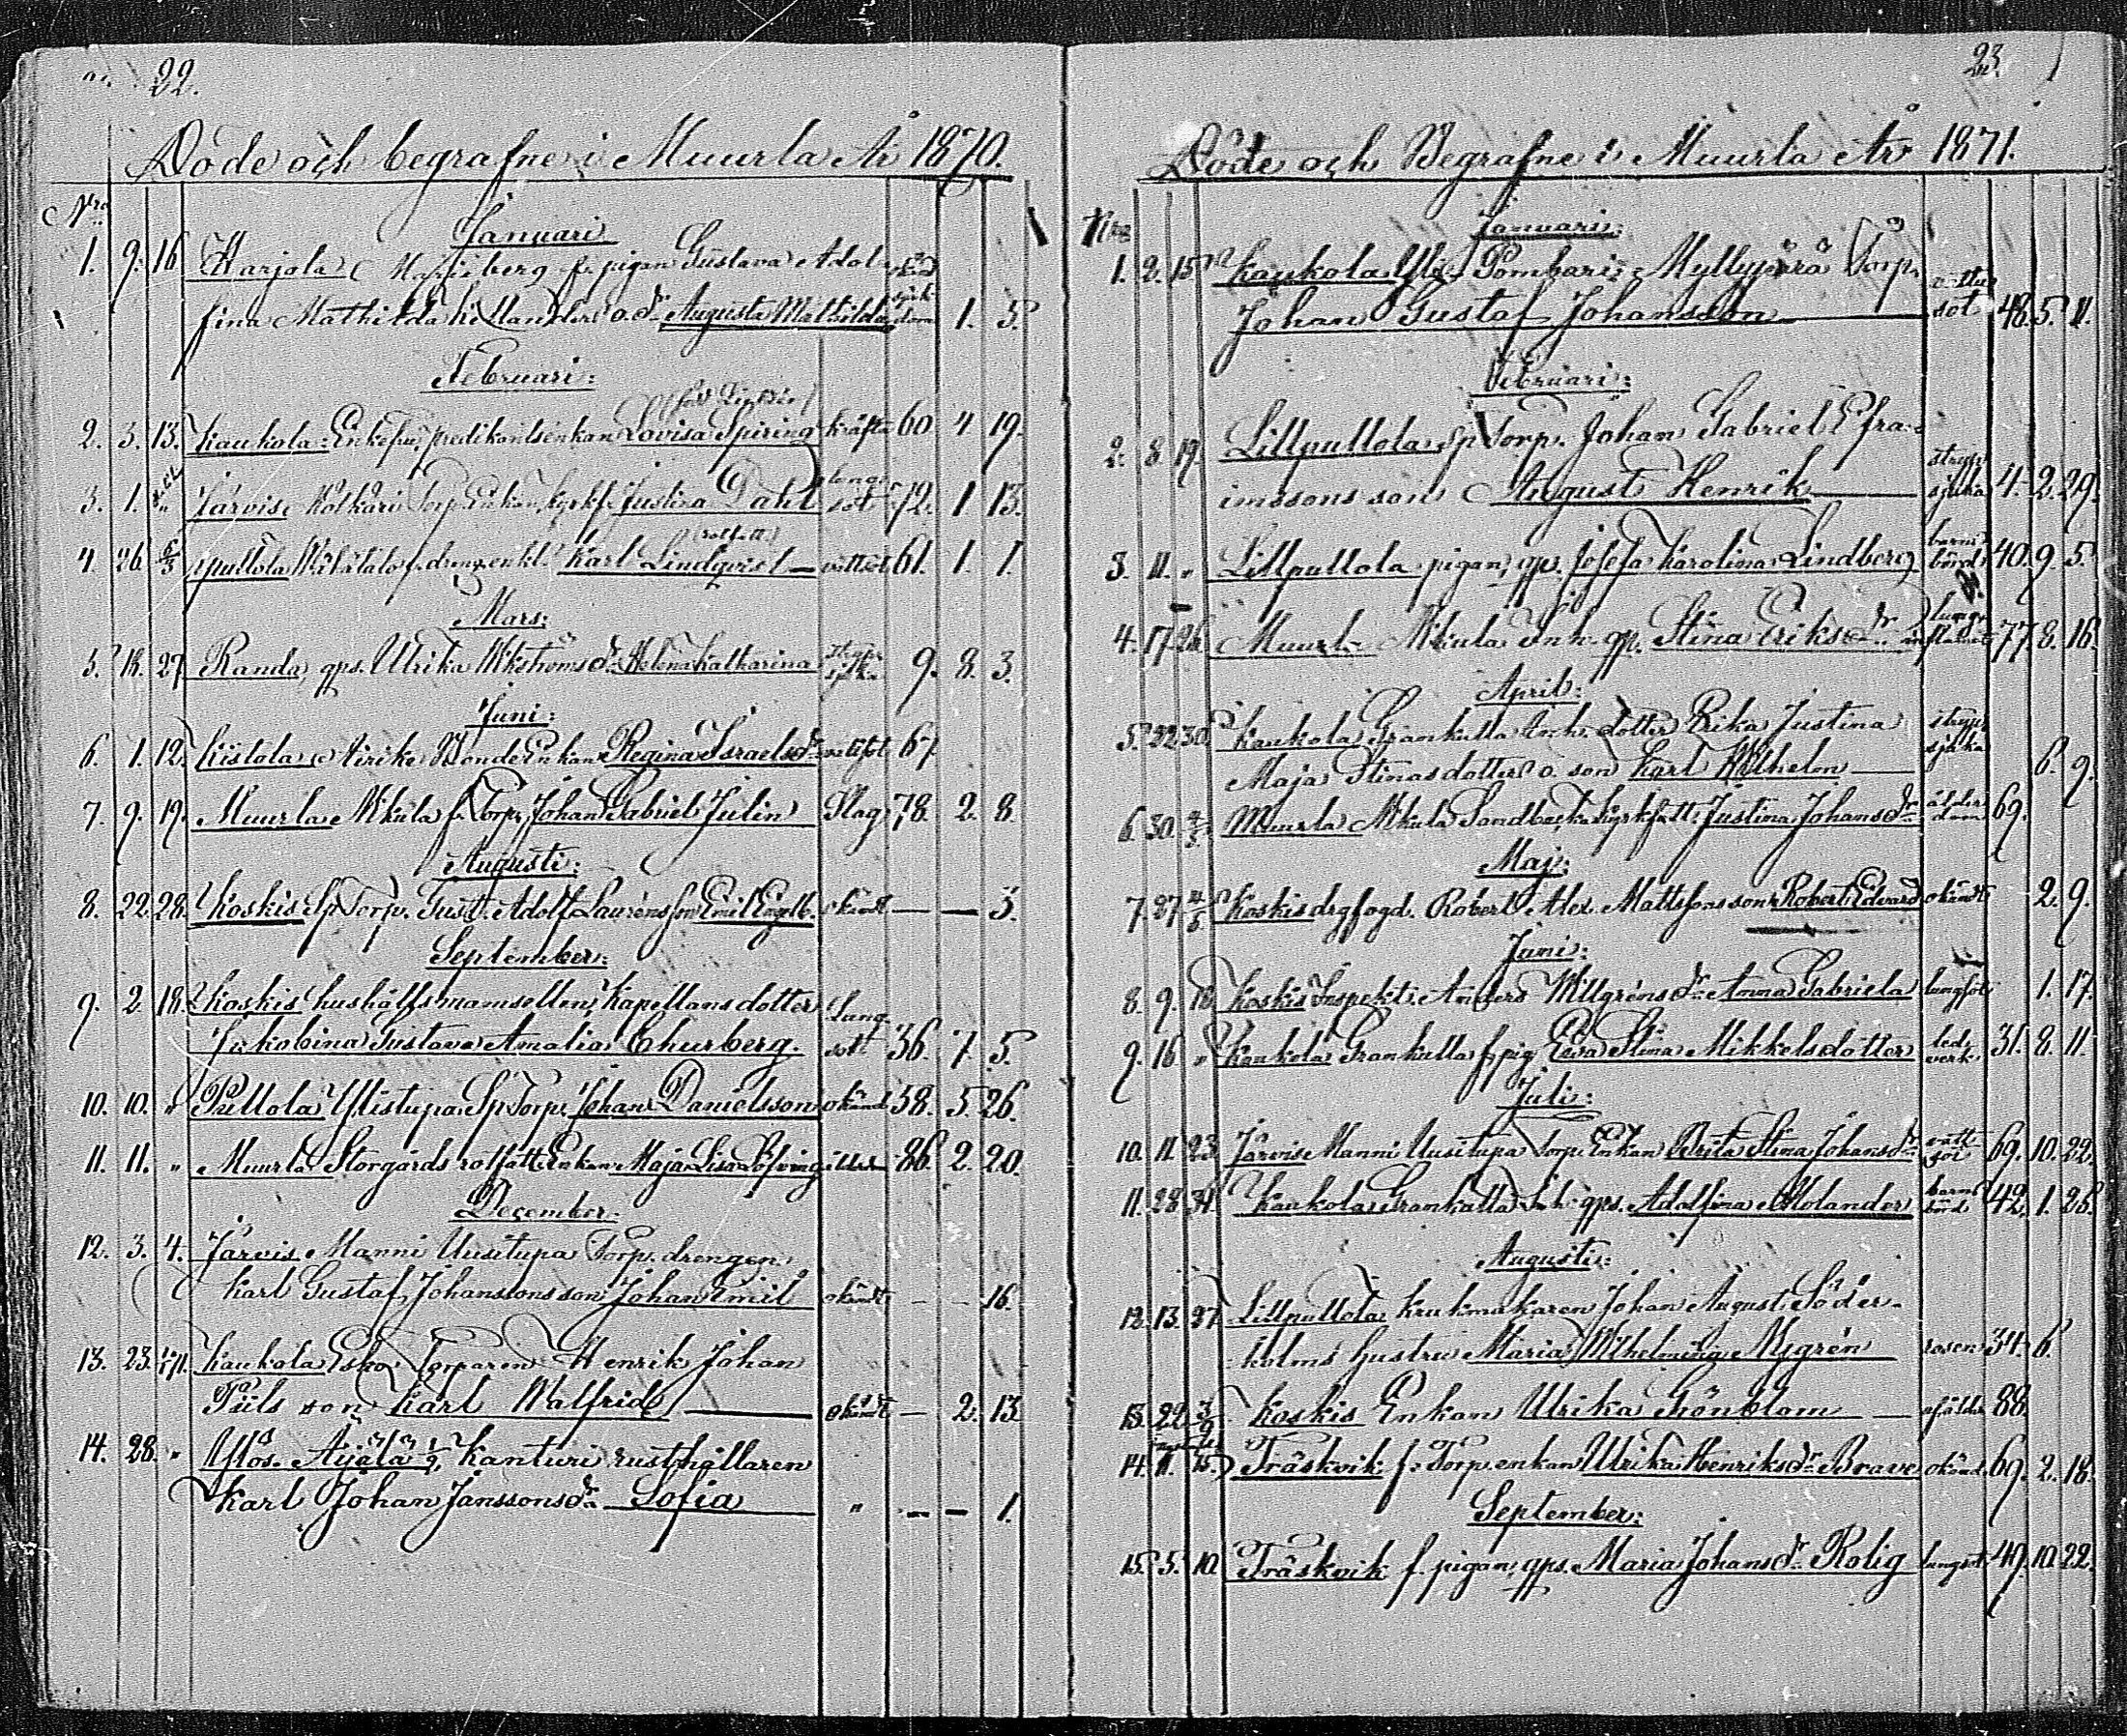 22.
Döde och begrafne i Muurla År 1870.
Nro
Januari
1. 9. 16 Harjola f. pigan Gustava Adol-
fina Mathilda Hellanders o.dr Augusta Mathilda okänd sjukdom 1. 5.
Februari:
2. 3. 13. Kaukola Enkefru predikantsenkan Lovisa Spiring kräfta 60 4 19.
3. 1. Järvis Torp. Enkan, Justina Dahl lungsot 72. 1 13.
4 26. 6/3 Pullola f. dreng enkl. Karl Lindqvist vattsot 61. 1. 1.
Mars:
5. 18. 27 Randa, gps. Ulrika Wikströms dr Helena Katharina stryp sjuka 9. 8. 3.
Juni:
6. 1. 12. Kistola Airike Bonde Enkan Regina Israelsdr vattsot 67
7. 9. 19. Muurla Nikula f. Torp. Johan Gabriel Julin Slag 78. 2. 8.
Augusti:
8. 22. 28. Koskis Sp Torp. Gust. Adolf Laurénsson Emil Engelb. okändt — — 3.
September:
9. 2. 18. Koskis hushållsmamsellen, Kapellans dotter
Jakobina Gustava Amalia Churberg. Lungsott 36. 7. 5.
10. 10. " Pullola Ylistupa Sp Torp. Johan Danielsson okänd 58. 5. 26.
11. 11. " Muurla Storgårds rotfatt. Enkan Maja Lisa Löfving ålder 86. 2. 20.
December:
12. 3. 4. Järvis Manni Uusitupa Torp. drengen
Karl Gustaf Johanssons son Johan Emil okändt — — 16.
13. 23. Kaukola Esko Torparen Henrik Johan
Piils son Karl Walfrid okändt — 2. 13
14. 28. " Ylös. Äijälä Kanturi rusthållaren
Karl Johan Janssons dr Sofia " — — 1.
23.
Döde och Begrafne i Muurla År 1871.
Nro
Januari:
1. 2. 15 Kaukola Yli Pombari Myllyperä Torp.
Johan Gustaf Johansson vattusot 48. 5. 11.
Februari:
2. 8 19. Lillpullola Sp Torp. Johan Gabriel Efra-
imssons son August Henrik strypsjuka 4. 2. 29.
3. 11. " Lillpullola pigan, gps. Josefa Karolina Lindberg barnsbörd 40. 9. 5.
4. 17. 26. Muurla Nikula Inh. gp. Stina Eriksdr lunginflamat 77. 8. 16.
April:
5. 22. 30 Kaukola Grankulla Inh. dotter Erika Justina
Maja Stinas dotters o. son Karl Wilhelm strypsjuka 6. 9.
6. 30. Muurla Nikula Sandbacka kyrkfatt. Justina Johansdr ålderdom 69.
Maj:
7. 27 4/6 Koskis drgfogd. Robert Alex. Mattssons son Robert Edvard okändt 2. 9.
Juni:
8. 9. 18 Koskis Inspekt. Anders Willgréns dr Anna Gabriela lungsot 1. 17.
9. 16 " Kaukola Grankulla f. pig. Eva Stina Mikkelsdotter ledverk 31. 8. 11.
Juli:
10. 11. 23. Järvis Manni Uusitupa Torp. Enkan Brita Stina Johansdr vattsot 69. 10. 22.
11. 28 31. Kaukola Grankulla Inh. gps. Adolfina Molander barnsbörd 42. 1. 25.
Augusti:
12. 13. 27. Lillpullola krukmakaren Johan August Söder-
holms hustru Maria Wilhelmina Nygrén rosen 34. 6.
13. 22 3/9 Koskis Enkan Ulrika Grönblom af ålder 88.
14. 11. Träskvik f. Torp. enkan Ulrika Henriksdr Brave okänd 69. 2. 18.
September:
15. 5. 10. Träskvik f. pigan, gps. Maria Johansdr Rolig lungsot 49. 10. 22.